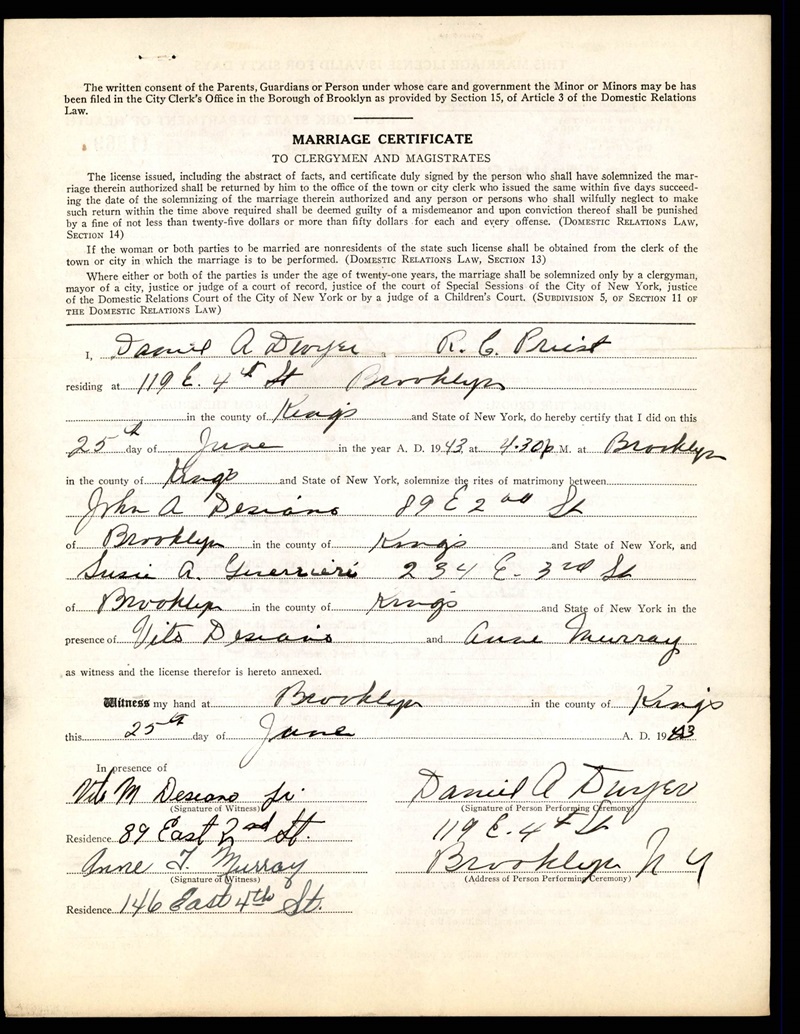 The written consent of the Parents, Guardians or Person under whose care and government the Minor or Minors may be has
been filed in the City Clerk's Office in the Borough of Brooklyn as provided by Section 15, of Article 3 of the Domestic Relations
Law.
MARRIAGE CERTIFICATE
TO CLERGYMEN AND MAGISTRATES
The license issued, including the abstract of facts, and certificate duly signed by the person who shall have solemnized the mar-
riage therein authorized shall be returned by him to the office of the town or city clerk who issued the same within five days succeed-
ing the date of the solemnizing of the marriage therein authorized and any person or persons who shall wilfully neglect to make
such return within the time above required shall be deemed guilty of a misdemeanor and upon conviction thereof shall be punished
by a fine of not less than twenty-five dollars or more than fifty dollars for each and every offense. (DOMESTIC RELATIONS LAW,
SECTION 14)
If the woman or both parties to be married are nonresidents of the state such license shall be obtained from the clerk of the
town or city in which the marriage is to be performed. (DOMESTIC RELATIONS LAW, SECTION 13)
Where either or both of the parties is under the age of twenty-one years, the marriage shall be solemnized only by a clergyman,
mayor of a city, justice or judge of a court of record, justice of the court of Special Sessions of the City of New York, justice
of the Domestic Relations Court of the City of New York or by a judge of a Children's Court. (SUBDIVISION 5, OF SECTION 11 OF
THE DOMESTIC RELATIONS LAW)
I, Daniel A Dwyer, R. C. Priest
residing at 119 E. 4th St Brooklyn
in the county of Kings and State of New York, do hereby certify that I did on this
25th day of June in the year A. D. 1943, at 4.30 p M. at Brooklyn
in the county of Kings and State of New York, solemnize the rites of matrimony between
John A Desiano 89 E 2nd St
of Brooklyn in the county of Kings and State of New York, and
Susie A. Guerrieri 234 E. 3rd St
of Brooklyn in the county of Kings and State of New York in the
presence of Vito Desiano and Anne Murray
as witness and the license therefor is hereto annexed.
Witness my hand at Brooklyn in the county of Kings
this 25th day of June A. D. 1943
In presence of
Vito M Desiano Jr. Daniel A Dwyer
(Signature of Witness) (Signature of Person Performing Ceremony)
Residence 89 East 2nd St. 119 E. 4th St
Anne T. Murray Brooklyn N Y
(Signature of Witness) (Address of Person Performing Ceremony)
Residence 146 East 4th St.